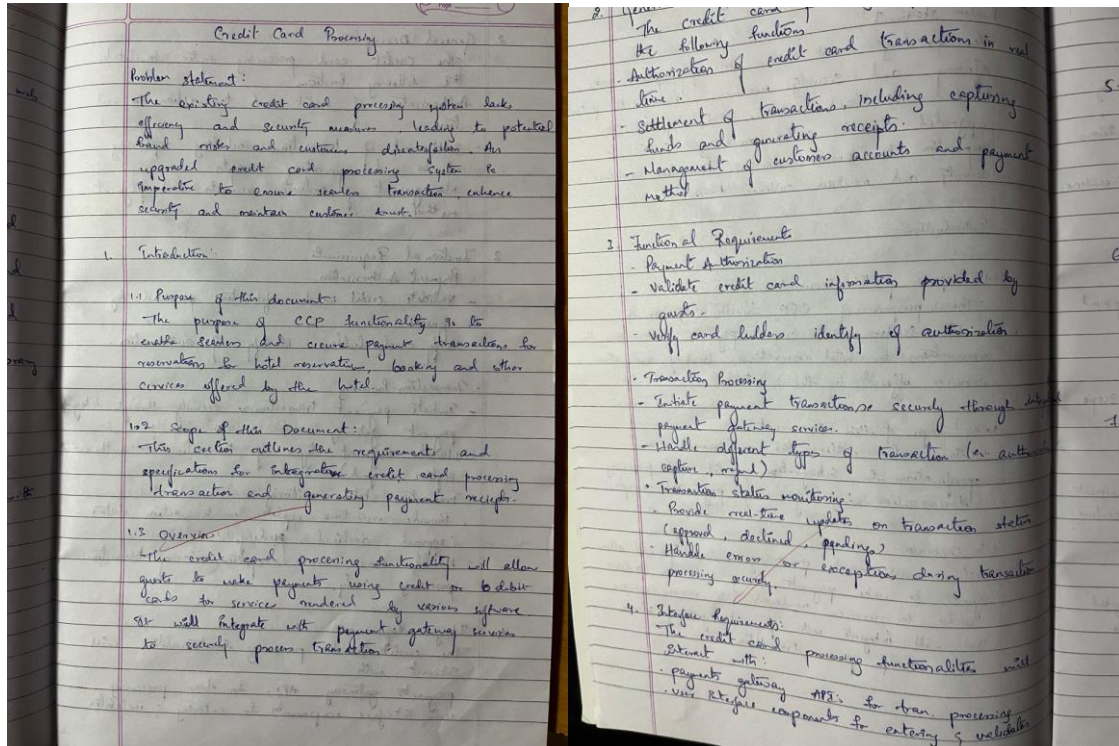 Credit Card Processing
Problem statement:
The existing credit card processing system lacks
efficiency and security measures, leading to potential
fraud risks and customers dissatisfaction. An
upgraded credit card processing System is
imperative to ensure seamless transaction, enhance
security and maintain customer trust.
1. Introduction:
1.1 Purpose of this document:
The purpose of CCP functionality is to
enable seamless and secure payment transactions for
reservations for hotel reservation, booking and other
services offered by the hotel.
1.2 Scope of this Document:
This section outlines the requirements and
specifications for integration credit card processing
transaction and generating payment reciepts.
1.3 Overview
The credit card processing functionality will allow
guests to make payments using credit or debit
cards for service rendered by various software
It will integrate with payment gateway services
to securely process transaction.
2.
The credit card
the following functions
- Authorization of credit card transactions in real
time.
- Settlement of transactions, including capturing
funds and generating receipts.
- Management of customers accounts and payment
method.
3. Functional Requirements
- Payment Authorization
- Validate credit card information provided by
guests.
- Verify card holders identify of authorization.
- Transaction Processing
- Initiate payment transactions securely through
payment gateway services.
- Handle different types of transaction (ex
capture, refund)
- Transaction status monitoring:
- Provide real-time updates on transaction status
(approval, declined, pendings)
- Handle errors or exceptions during transaction
processing securely
4. Interface Requirements:
The credit card processing functionalities will
interact with:
- payments gateway APIs for tran. processing
- user interface components for entering & validates